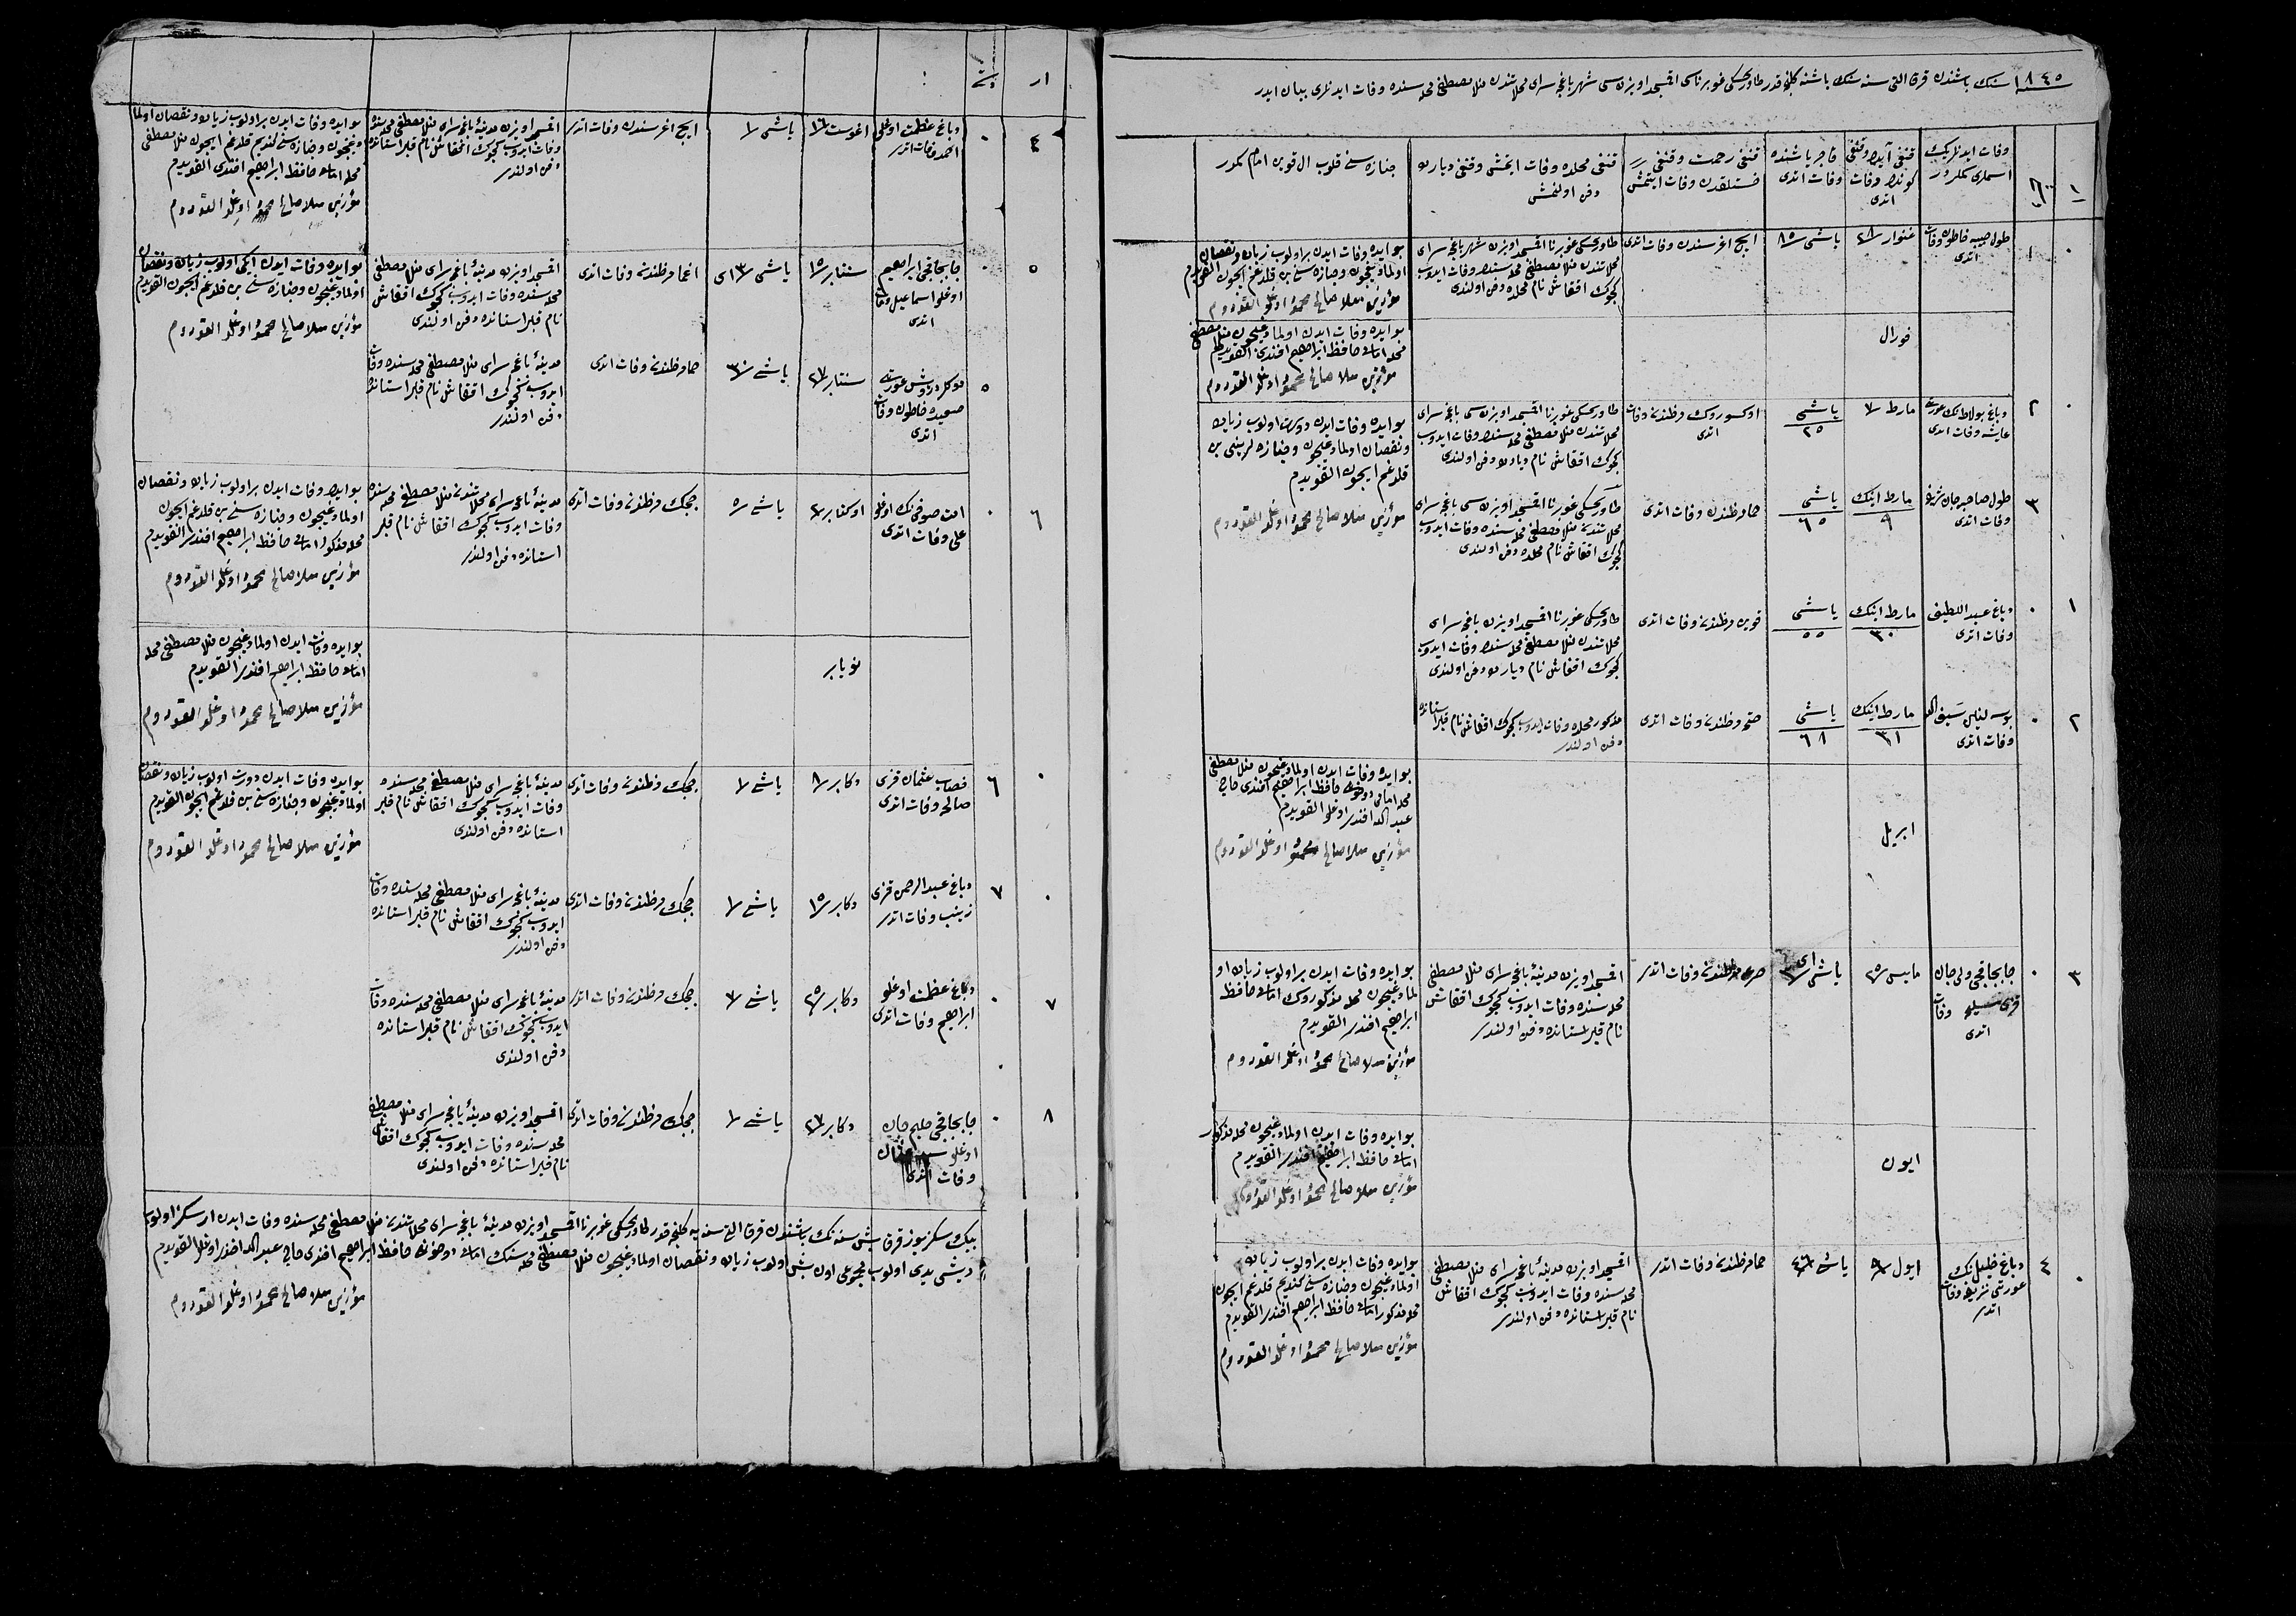 ١٨٤٥ سنك باشندن قرق التى سنه سنك باشنه كلنجه قدر طاوريچسكى غوبرناسى اقمسجد اويزناسى شهر باغچه سراى محلاتندن منلا مصطفى محله سنده وفات ايدنلرى بيان ايدر
وفات ايدنلرينك اسملرى كلرور
قنغى آيده وقنغى كونده وفات اتدى
قاچر ياشنده وفات اتدى
قنغى زحمت وقنغى خستلقدن وفات ايتمش
قنغى محلده وفات اتمش وقنغى ديارده دفن اولنمش
جنازه سنى قلوب ال قوين امام كلرور
١
طول حبيبه خاطون وفات اتدى
غنوار ٢٨
ياشى ٨٥
ايچ اغرسندن وفات اتدى
طاوريچسكى غوبرنا اقمسجد اويزن شهر باغچه سراى
محلاتندن منلا مصطفى محله سنده وفات ايدوب
كچوك افقاش نام محلده دفن اولندى
بو ايده وفات ايدن بر اولوب زياده ونقصان
اولماديغيچون وجنازه سنى بن قلدغم ايچون القويدم
مؤزين ملا صالح محمود اوغلو القودوم
فورال
بو ايده وفات ايدن اولماديغيچون منلا مصطفى
محله امامى حافظ ابراهيم افندى القويدم
مؤزين ملا صالح محمود اوغلو القودوم
٢
دباغ بولاطنك عورتى
عايشه وفات اتدى
مارط ٧
ياشى ٢٥
اوكسوروك مرظندن وفات اتدى
طاوريچسكى غوبرنا اقمسجد اويزن سى باغچه سراى
محلاتندن منلا مصطفى محله سنده وفات ايدوب
كچوك افقاش نام ديارده دفن اولندى
بو ايده وفات ايدن دورت اولوب زياده
ونقصان اولماديغيچون وجنازه لرينى بن
قلدغم ايچون القويدم
مؤزين ملا صالح محمود اوغلو القودوم
٣
طول صاحبجان شريفه
وفات اتدى
مارط اينك ٩
ياشى ٦٥
حما مرظندن وفات اتدى
طاوريچسكى غوبرنا اقمسجد اويزن سى باغچه سراى
محلاتندن منلا مصطفى محله سنده وفات ايدوب
كچوك افقاش نام محلده دفن اولندى
١
دباغ عبد اللطيف
وفات اتدى
مارط اينك ٣٠
ياشى ٥٥
قورى مرظندن وفات اتدى
طاوريچسكى غوبرنا اقمسجد اويزن باغچه سراى
محلاتندن منلا مصطفى محله سنده وفات ايدوب
كچوك افقاش نام ديارده دفن اولندى
٢
وفات اتدى
مارط اينك ٣١
ياشى ٦٨
وفات اتدى
مذكور محلده وفات ايدوب كچوك افقاش نام قبراستانده
دفن اولندى
ابريل
بو ايده وفات ايدن اولماديغيچون منلا مصطفى
محله امامى دوخونى حافظ ابراهيم افندى حاجى
عبد الله افندى اوغلو القويدم
مؤزين ملا صالح محمود اوغلو القودوم
٣
وفات اتدى
مايس ٢٥
ياشى ٣ اى
وفات اتدى
اقمسجد اويزن مدينۀ باغچه سراى منلا مصطفى
محله سنده وفات ايدوب كچوك افقاش
نام قبراستانده دفن اولندى
بو ايده وفات ايدن بر اولوب زياده او
لماديغيچون محله مذكوروك امامى حافظ
ابراهيم افندى القويدم
مؤزين ملا صالح محمود اوغلو القودوم
ايون
بو ايده وفات ايدن اولماديغيچون محله مذكور
امامى حافظ ابراهيم افندى القويدم
مؤزين ملا صالح محمود اوغلو القودوم
٤
دباغ خليل نك
عورتى شريفه وفات
اتدى
ايول ٩
حما مرظندن وفات اتدى
اقمسجد اويزن مدينۀ باغچه سراى منلا مصطفى
محله سنده وفات ايدوب كچوك افقاش
نام قبراستانده دفن اولندى
بو ايده وفات ايدن بر اولوب زياده
اولماديغيچون وجنازه سنى كنديم قلدغم ايچون
محله مذكور امامى حافظ ابراهيم افندى القويدم
مؤزين ملا صالح محمود اوغلو القودوم
ار
٤
دباغ عظمت اوغلى
احمد وفات اتدى
اغوست ١٦
ياشى ١
ايچ اغرسندن وفات اتدى
اقمسجد اويزن مدينۀ باغچه سراى منلا مصطفى محله سنده
وفات ايدوب كچوك افقاش نام قبراستانده
دفن اولندى
بو ايده وفات ايدن بر اولوب زياده ونقصان اولما
ديغيچون وجنازه سنى كنديم قلدغم ايچون منلا مصطفى
محله امامى حافظ ابراهيم افندى القويدم
مؤزين ملا صالح محمود اوغلو القودوم
٥
جابجاقجى ابراهيم
اوغلو اسماعيل وفات
اتدى
سنتابر ١٥
ياشى ٣ اى
وفات اتدى
اقمسجد اويزن مدينۀ باغچه سراى منلا مصطفى
محله سنده وفات ايدوب كچوك افقاش
نام قبراستانده دفن اولندى
بو ايده وفات ايدن ايكى اولوب زياده ونقصان
اولماديغيچون وجنازه سنى بن قلدغم ايچون القويدم
مؤزين ملا صالح محمود اوغلو القودوم
٥
سعيده خاطون وفات
اتدى
سنتابر ٢٧
ياشى ٣٠
حما مرظندن وفات اتدى
مدينۀ باغچه سراى منلا مصطفى محله سنده وفات
ايدوب كچوك افقاش نام قبراستانده
دفن اولندى
٦
على وفات اتدى
اوكتابر
ياشى ٥
چچك مرظندن وفات اتدى
مدينۀ باغچه سراى محلاتندن منلا مصطفى محله سنده
وفات ايدوب كچوك افقاش نام قبر
استانده دفن اولندى
بو ايده وفات ايدن بر اولوب زياده ونقصان
اولماديغيچون وجنازه سنى بن قلدغم ايچون
محله مذكور امامى حافظ ابراهيم افندى القويدم
مؤزين ملا صالح محمود اوغلو القودوم
نويابر
بو ايده وفات ايدن اولماديغيچون منلا مصطفى محله
امامى حافظ ابراهيم افندى القويدم
مؤزين ملا صالح محمود اوغلو القودوم
٦
قصاب عثمان قزى
صالحه وفات اتدى
دكابر ٨
ياشى ١
چچك مرظندن وفات اتدى
مدينۀ باغچه سراى منلا مصطفى محله سنده
وفات ايدوب كچوك افقاش نام قبر
استانده دفن اولندى
بو ايده وفات ايدن دورت اولوب زياده ونقصان
اولماديغيچون وجنازه سنى بن قلدغم ايچون القويدم
مؤزين ملا صالح محمود اوغلو القودوم
٧
دباغ عبد الرحمن قزى
زينب وفات اتدى
دكابر ١٥
ياشى ١
چچك مرظندن وفات اتدى
مدينۀ باغچه سراى منلا مصطفى محله سنده وفات
ايدوب كچوك افقاش نام قبراستانده
دفن اولندى
٧
دباغ عظمت اوغلو
ابراهيم وفات اتدى
دكابر ٢٥
ياشى ٣
چچك مرظندن وفات اتدى
مدينۀ باغچه سراى منلا مصطفى محله سنده وفات
ايدوب كچوك افقاش نام قبراستانده
دفن اولندى
٨
جابجاقجى حليم جان
اوغلو
وفات اتدى
دكابر ٢٧
ياشى ١
چچك مرظندن وفات اتدى
اقمسجد اويزن مدينۀ باغچه سراى منلا مصطفى
محله سنده وفات ايدوب كچوك افقاش
نام قبراستانده دفن اولندى
بيك سكز يوز قرق بش سنه نك باشندن قرق التى سنه يه كلنجه قدر طاوريچسكى غوبرنا اقمسجد اويزن مدينۀ باغچه سراى محلاتندن منلا مصطفى محله سنده وفات ايدن ار سكز اولوب
ديشى يدى اولوب مجموعى اون بش اولوب زياده ونقصان اولماديغيچون منلا مصطفى محله سنك امامى دوخونى حافظ ابراهيم افندى حاجى عبد الله افندى اوغلو القويدم
مؤزين ملا صالح محمود اوغلو القودوم